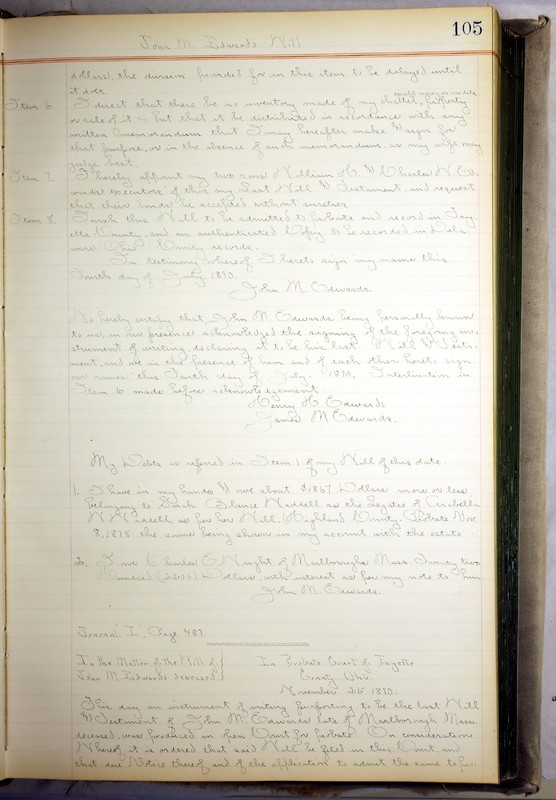 105
John M. Edwards Will
dollars, the division provided for in this item to be delayed until
it does.
Item 6. I direct that there be no inventory made of my chattel property
or sale of it - but that it be distributed in accordance with any
written memorandum that I may hereafter make & sign for
that purpose, or in the absence of such memorandum, as my wife may
judge best.
Item 7. I hereby appoint my two sons William H. & Charles N. Ed-
wards executors of this my Last Will & Testament, and request
that their bonds be accepted without sureties
Item 8. I wish this Will to be admitted to probate and record in Fay-
ette County, and an authenticated Copy to be recorded in Dela-
ware Ohio County records.
In testimony whereof I hereto sign my name this
Fourth day of July, 1890.
John M. Edwards.
We hereby certify that John M. Edwards being personally known
to us, in our presence acknowledged the signing of the foregoing in-
strument of writing, declaring it to be his last Will & Testa-
ment, and we in the presence of him and of each other hereto sign
our names this Fourth day of July, 1890. Interlineation in
Item 6 made before acknowledgement.
Henry H. Edwards
James M. Edwards.
My Debts as referred in Item 1 of my Will of this date.
1. I have in my hands & owe about $1867 Dollars more or less
belonging to Sarah Blance Waddell as the Legatee of
Waddell as per her Will, (Highland County Probate Nov.
8, 1875 the same being shown in my account with the estate.
2. I owe Charles E. Wright of Marlborough Mass. Twenty two
Hundred (2200) Dollars, with interest as per my note to him
John M. Edwards.
Journal I, Page 487.
In the Matter of the Will of }
John M. Edwards deceased }
In Probate Court of Fayette
County Ohio.
November 26" 1890.
This day an instrument of writing purporting to be the last Will
& Testament of John M. Edwards late of Marlborough Mass.
deceased, was produced in open Court for probate. On consideration
Whereof it is ordered that said Will be filed in this Court, and
that due Notice thereof and of the application to admit the same to pro-